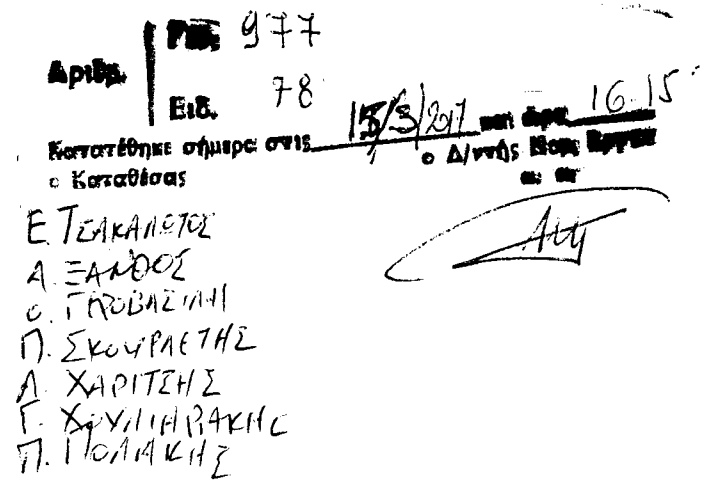 Αριθμ. Γεν. 977
Ειδ. 78
Κατατέθηκε σήμερα στις 15/3/2017 και ώρα 16.15
ο Καταθέσας ο Δ/ντής Νομ. Εργου
Ε. ΤΣΑΚΑΛΩΤΟΣ
Α. ΞΑΝΘΟΣ
Ο. ΓΕΡΟΒΑΣΙΛΗ
Π. ΣΚΟΥΡΛΕΤΗΣ
Α. ΧΑΡΙΤΣΗΣ
Γ. ΧΟΥΛΙΑΡΑΚΗΣ
Π. ΠΟΛΑΚΗΣ